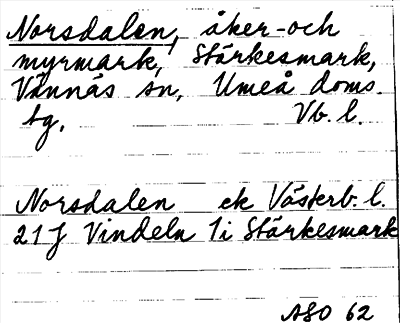 Norsdalen, åker- och
myrmark, Stärkesmark,
Vännäs sn, Umeå doms.
tg. Vb. l.
Norsdalen ek Västerb. l.
21J Vindeln 1i Stärkesmark
ASO 62